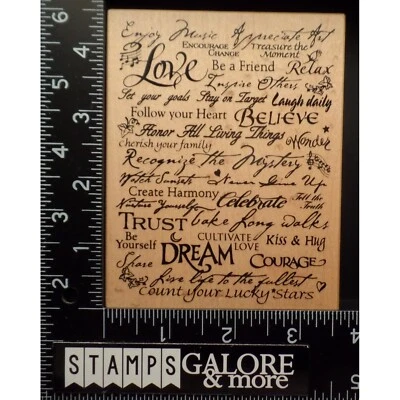 Enjoy Music Appreciate Art
Encourage Change Treasure the Moment
Love Be a Friend Relax
Inspire Others
Set your goals Stay on Target Laugh daily
Follow your Heart Believe
Honor All Living Things Wonder
Cherish your family
Recognize the Mystery
Watch Sunsets Never Give Up
Create Harmony Celebrate Tell the Truth
Nurture Yourself
Trust Take Long Walks
Be Yourself Cultivate Love Kiss & Hug
Dream
Share Courage
Live life to the fullest
Count your Lucky Stars
6
5
4
3
2
1
1 2 3 4
STAMPS GALORE
& more